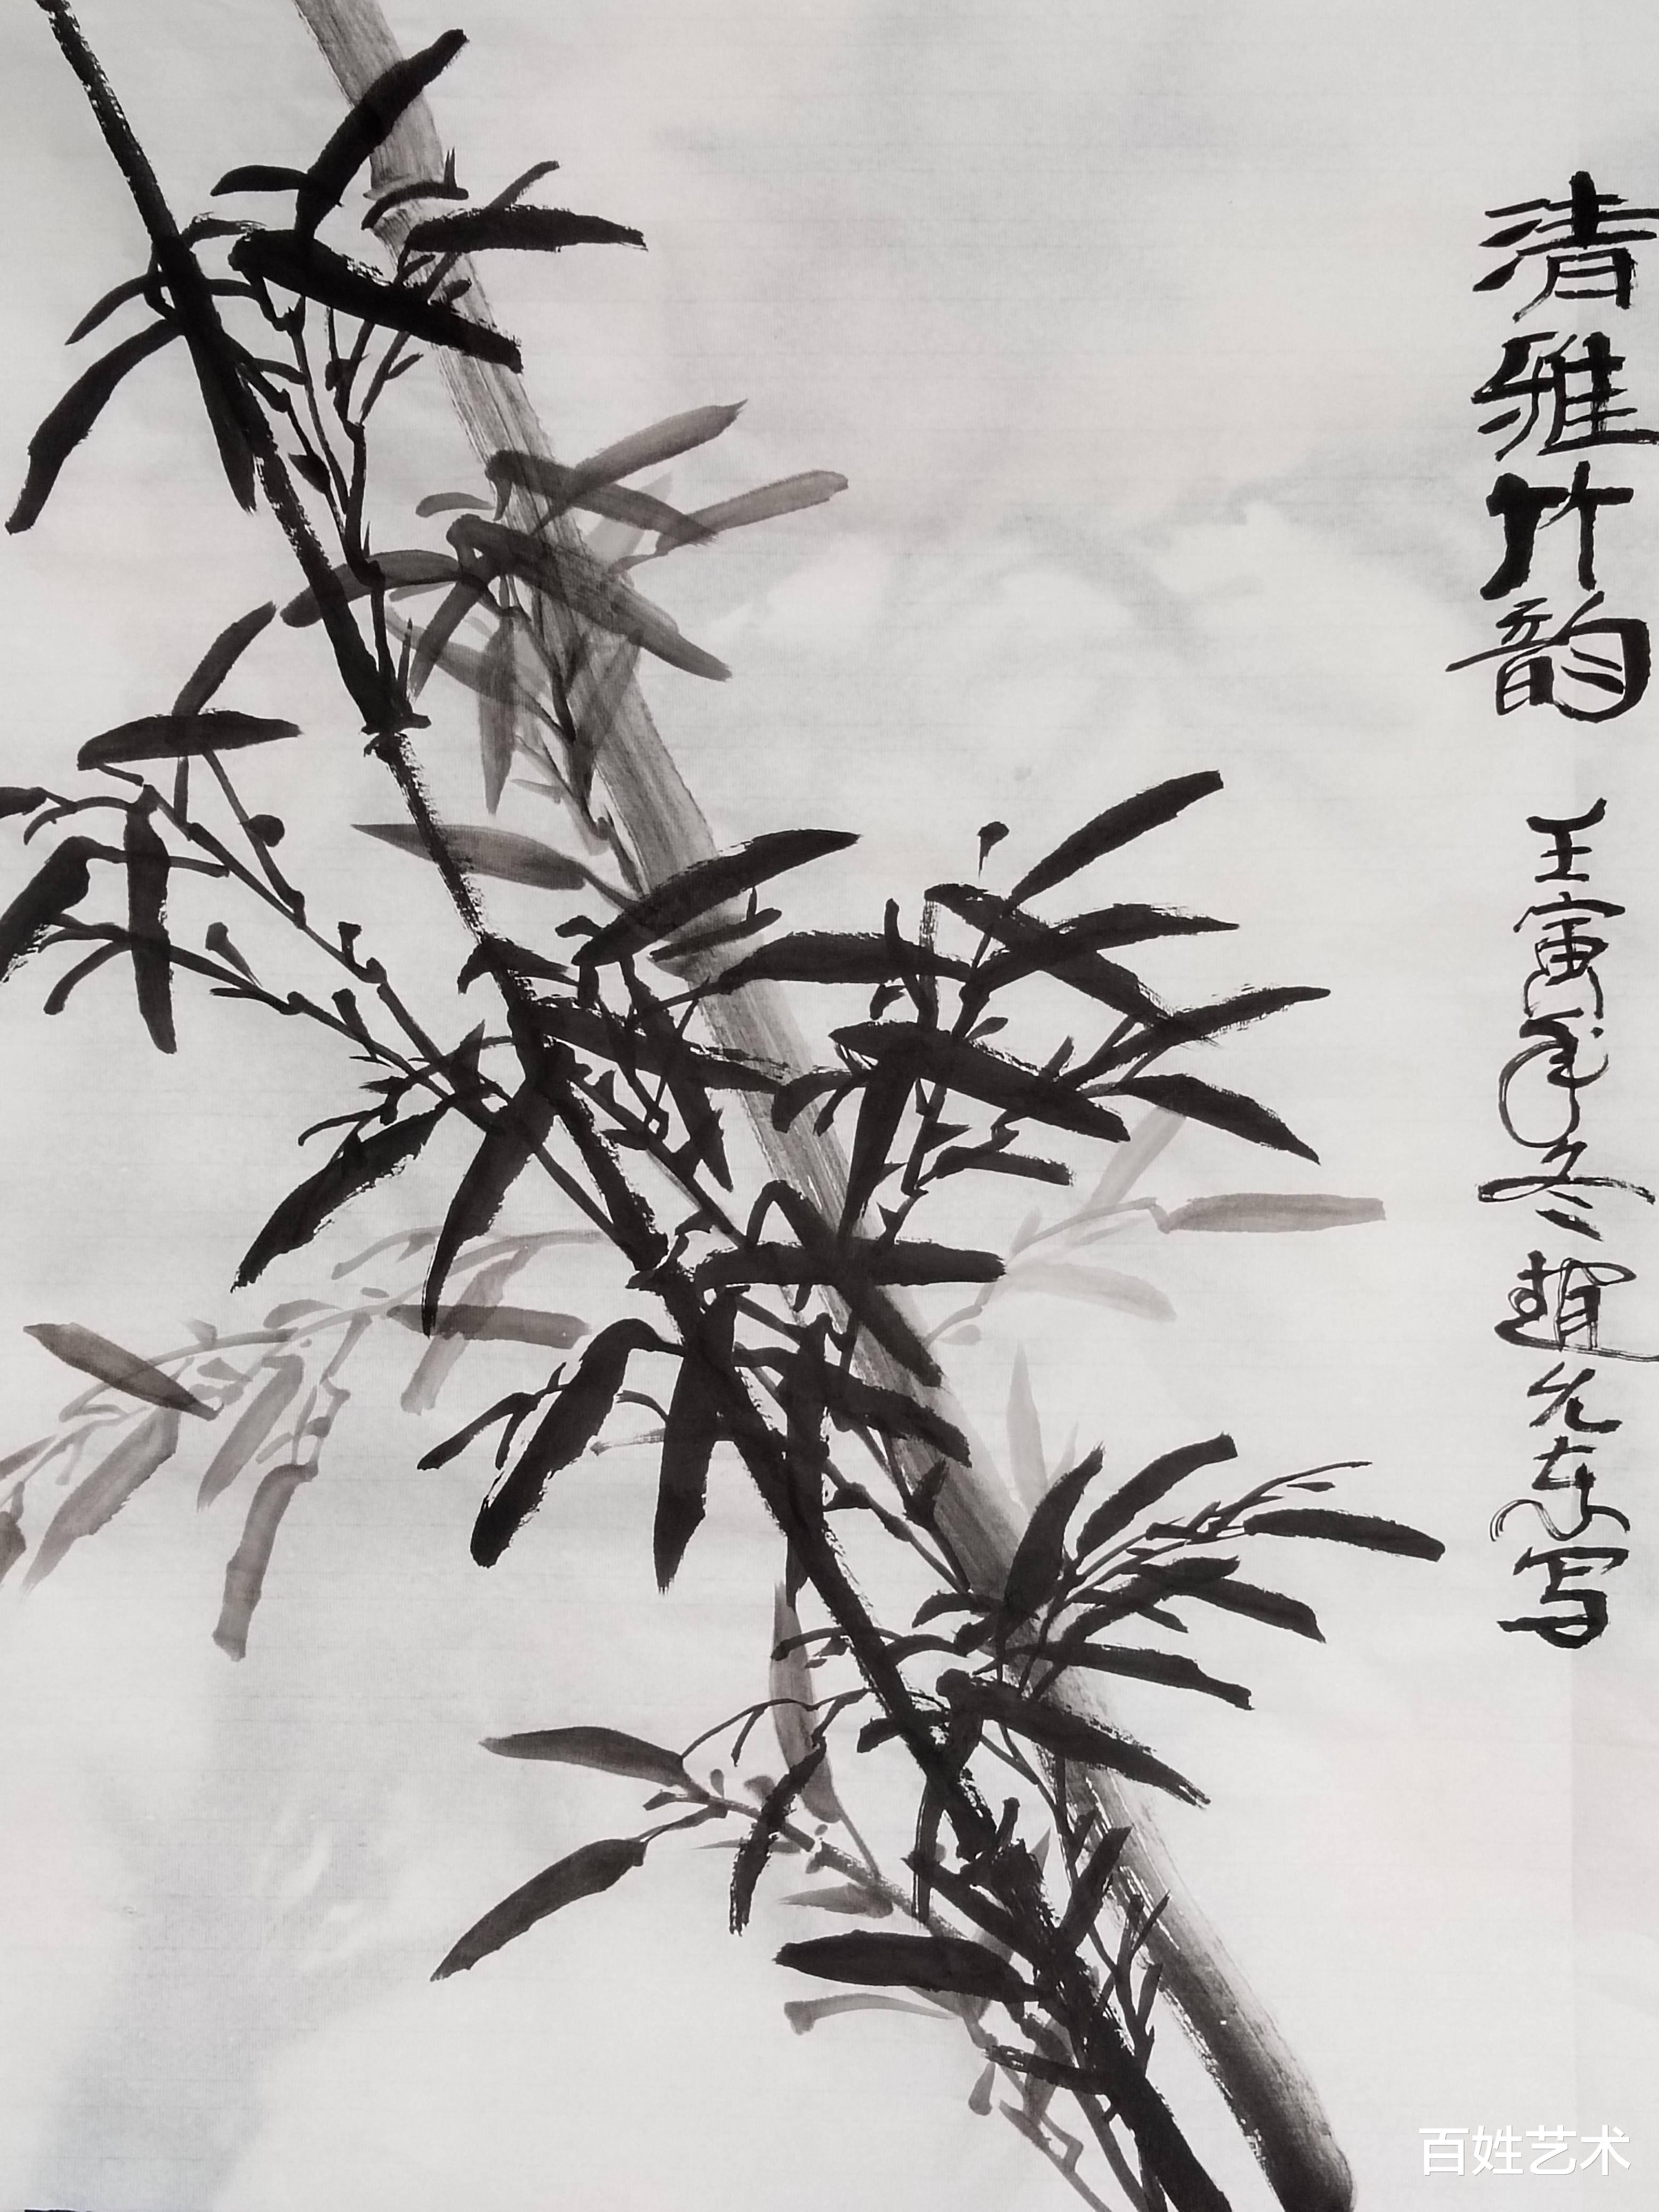 清雅竹韵
壬寅年冬赵允东写
百姓艺术